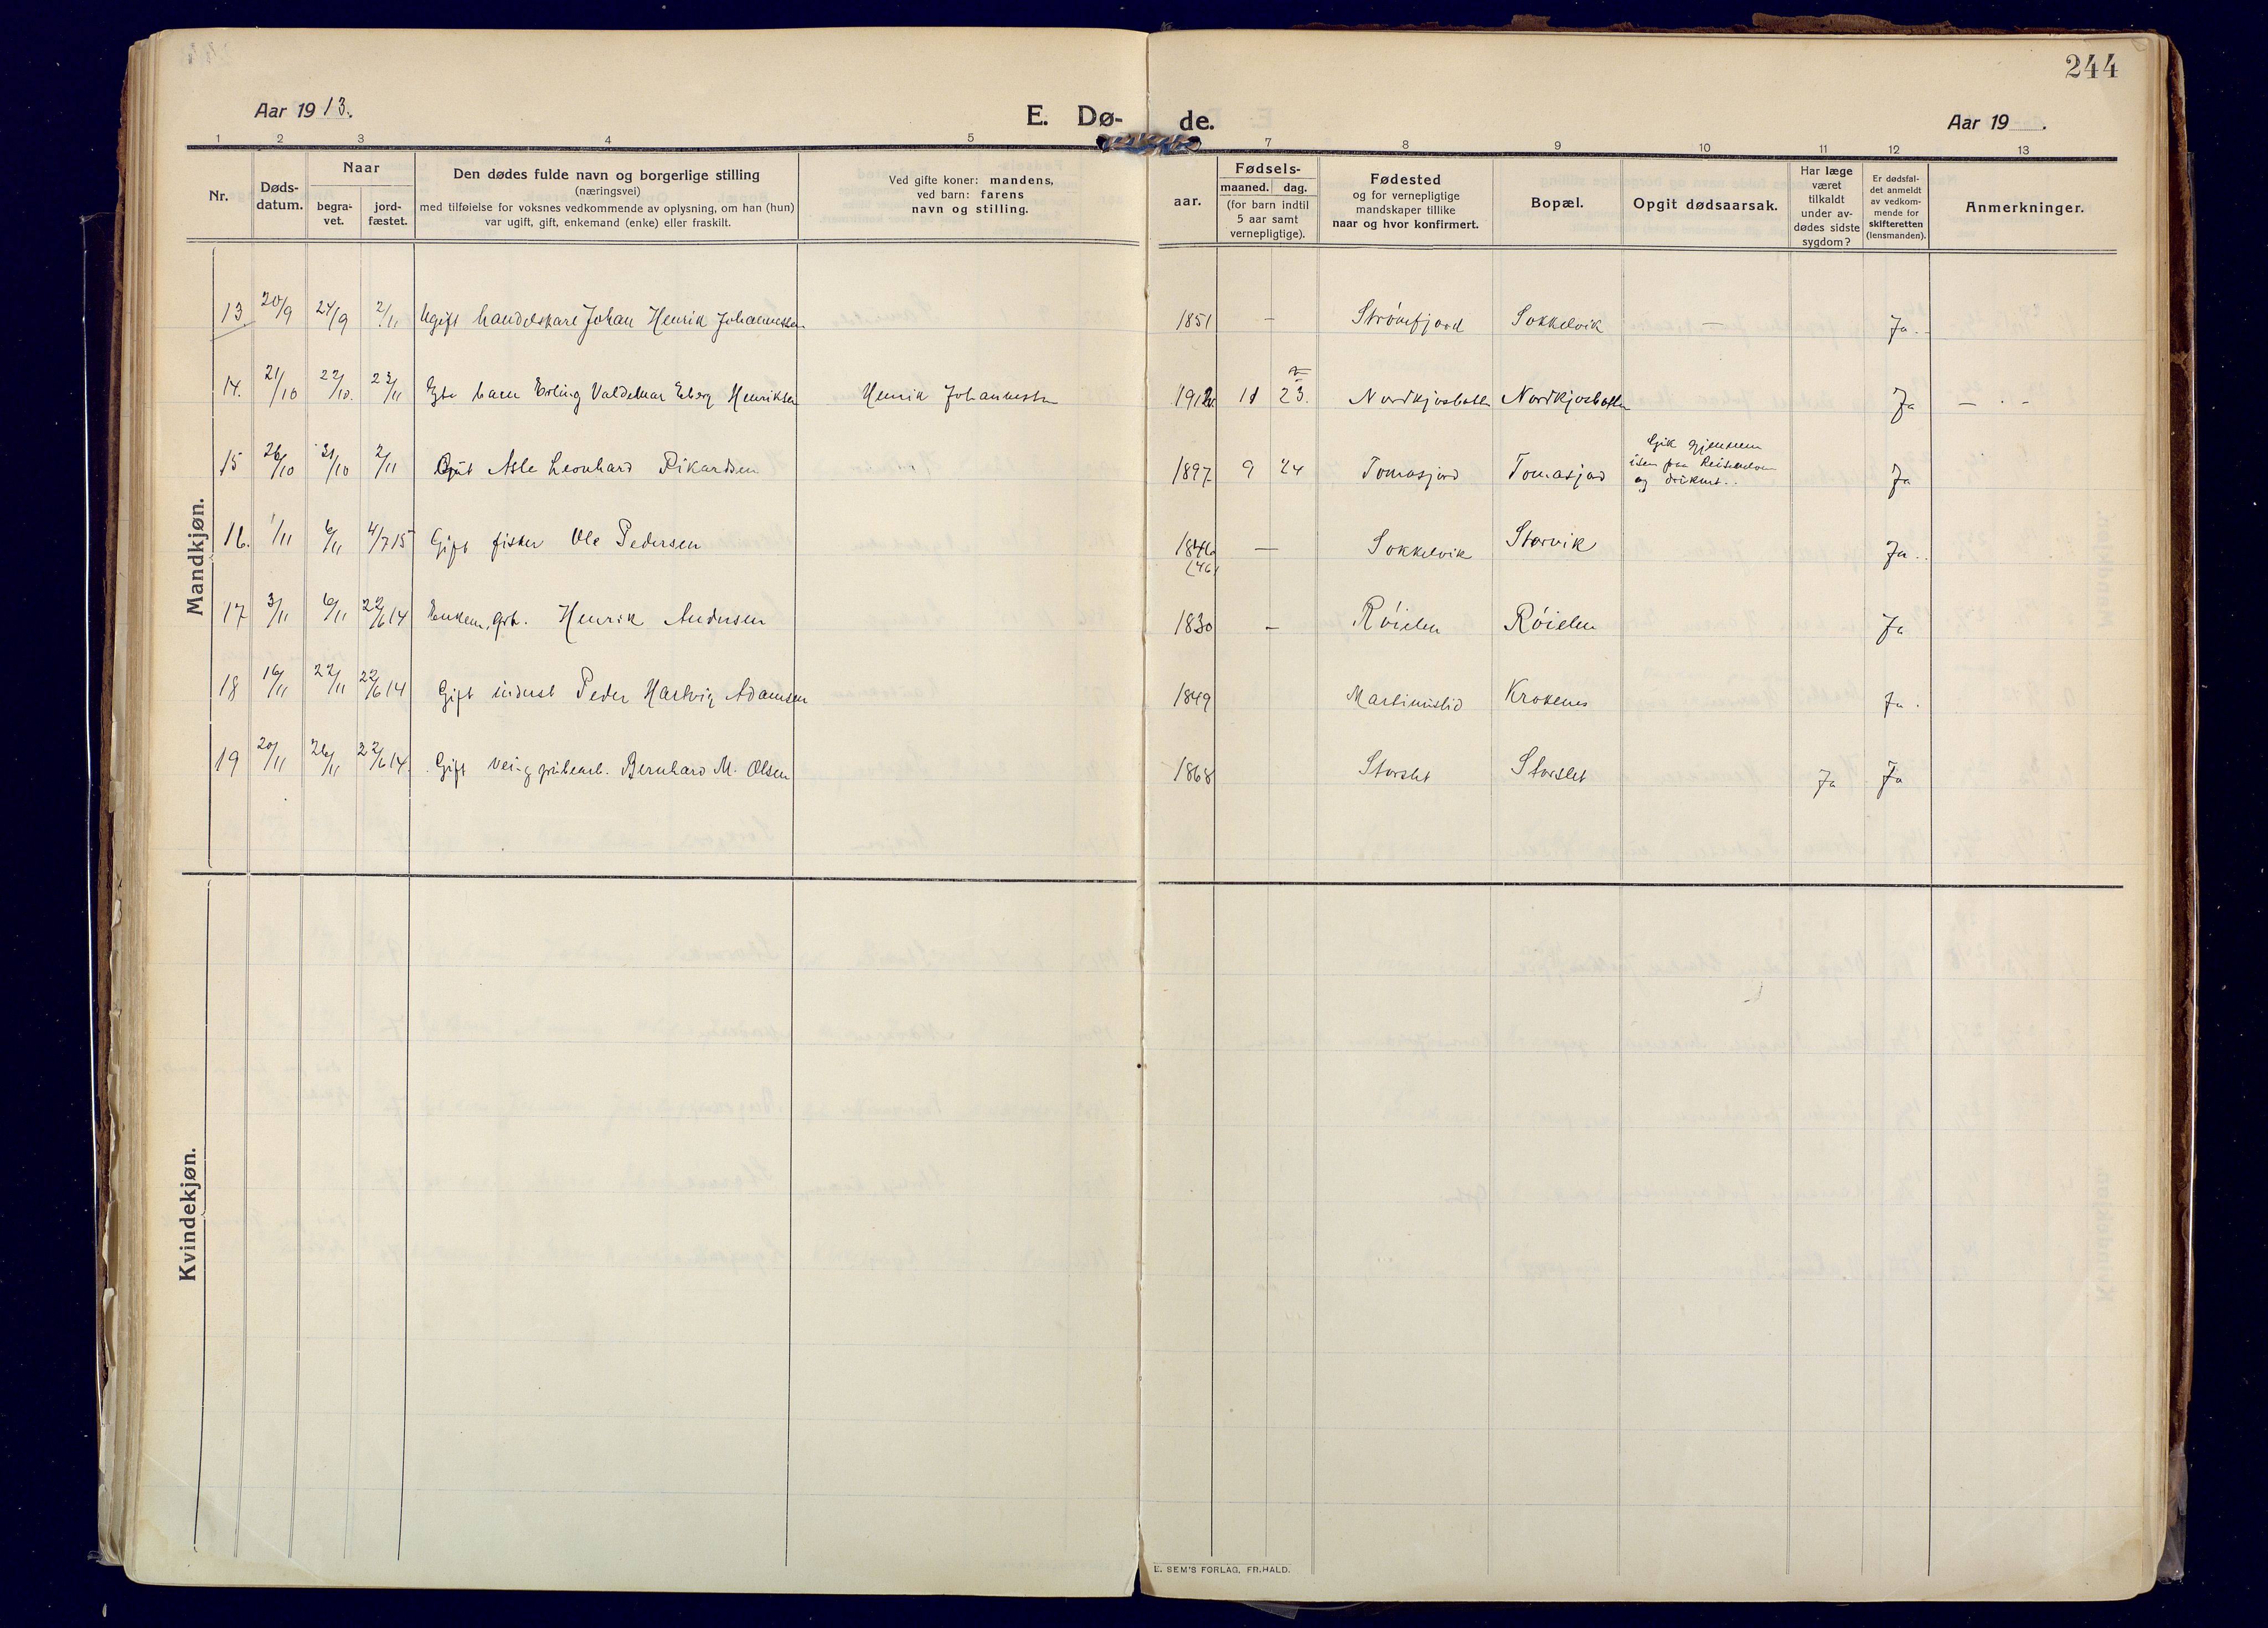 244
Aar 1913.
E. Dø-
de.
Aar 19 .
1 2 3 4 5 7 8 9 10 11 12 13
Nr.
Døds-
datum.
Naar
begra-
vet.
jord-
fæstet.
Den dødes fulde navn og borgerlige stilling
(næringsvei)
med tilføielse for voksnes vedkommende av oplysning, om han (hun)
var ugift, gift, enkemand (enke) eller fraskilt.
Ved gifte koner: mandens,
ved barn: farens
navn og stilling.
aar.
Fødsels-
maaned. dag.
(for barn indtil
5 aar samt
vernepligtige).
Fødested
og for vernepligtige
mandskaper tillike
naar og hvor konfirmert.
Bopæl.
Opgit dødsaarsak.
Har læge
været
tilkaldt
under av-
dødes sidste
sygdom?
Er dødsfal-
det anmeldt
av vedkom-
mende for
skifteretten
(lensmanden).
Anmerkninger.
Mandkjøn.
13 20/9 24/9 2/11 Ugift handelskarl Johan Henrik Johannessen 1851 — Strømfjord Sokkelvik — Ja.
14. 21/10 22/10. 23/11 Gbr barn Erling Valdemar Eberg Henriksen Henrik Johannessen 1912 11 23. Nordkjosbotten Nordkjosbotten Ja — . -
15 26/10 31/10 2/11 Gut Asle Leonhard Rikardsen 1897 9 24 Tomasjord Tomasjord Gik gjennem
isen paa Reisenelven
og druknet.. Ja
16. 1/11 6/11 4/7 15 Gift fisker Ole Pedersen 1846
(46) — Sokkelvik Storvik Ja.
17 3/11 6/11 22/6 14 Enkem. gbr. Henrik Andersen 1830 — Røielen Røielen Ja
18 16/11 22/11 22/6 14 Gift inderst Peder Hartvig Adamsen 1849 Martinuslid Krokenes Ja.
19 20/11 26/11 22/6 14. Gift vei- g grubearb. Bernhard M. Olsen 1868 Storslet Storslet Ja Ja
Kvindekjøn.
E. SEM'S FORLAG, FR.HALD.